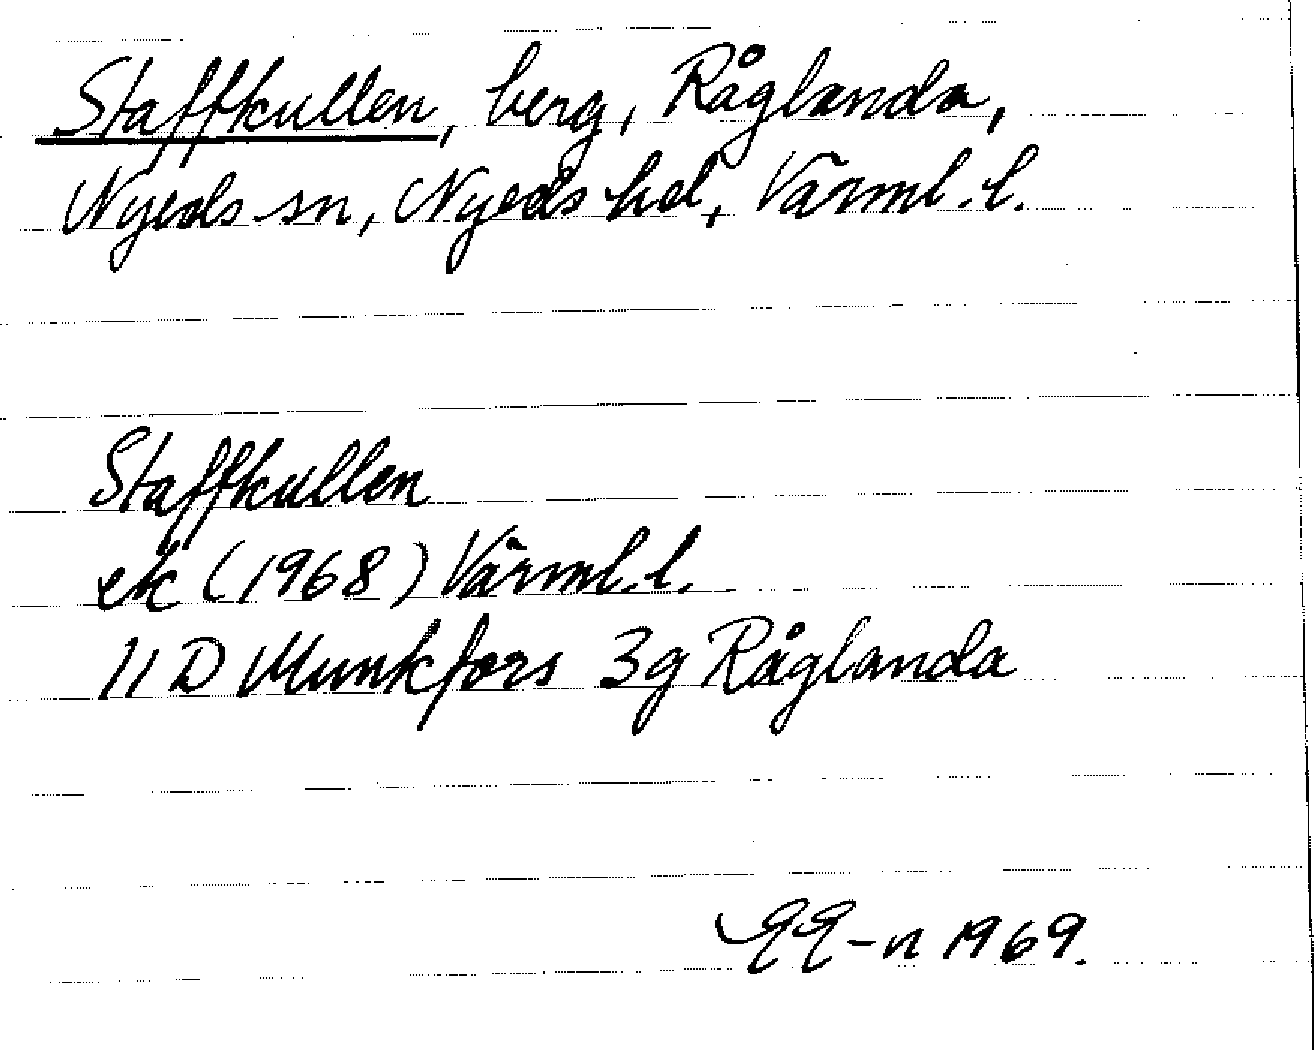 Staffkullen, berg, Råglanda,
Nyeds sn, Nyeds hd, Värml. l.
Staffkullen
ek (1968) Värml. l.
11 D Munkfors 3g Råglanda
-n 1969.